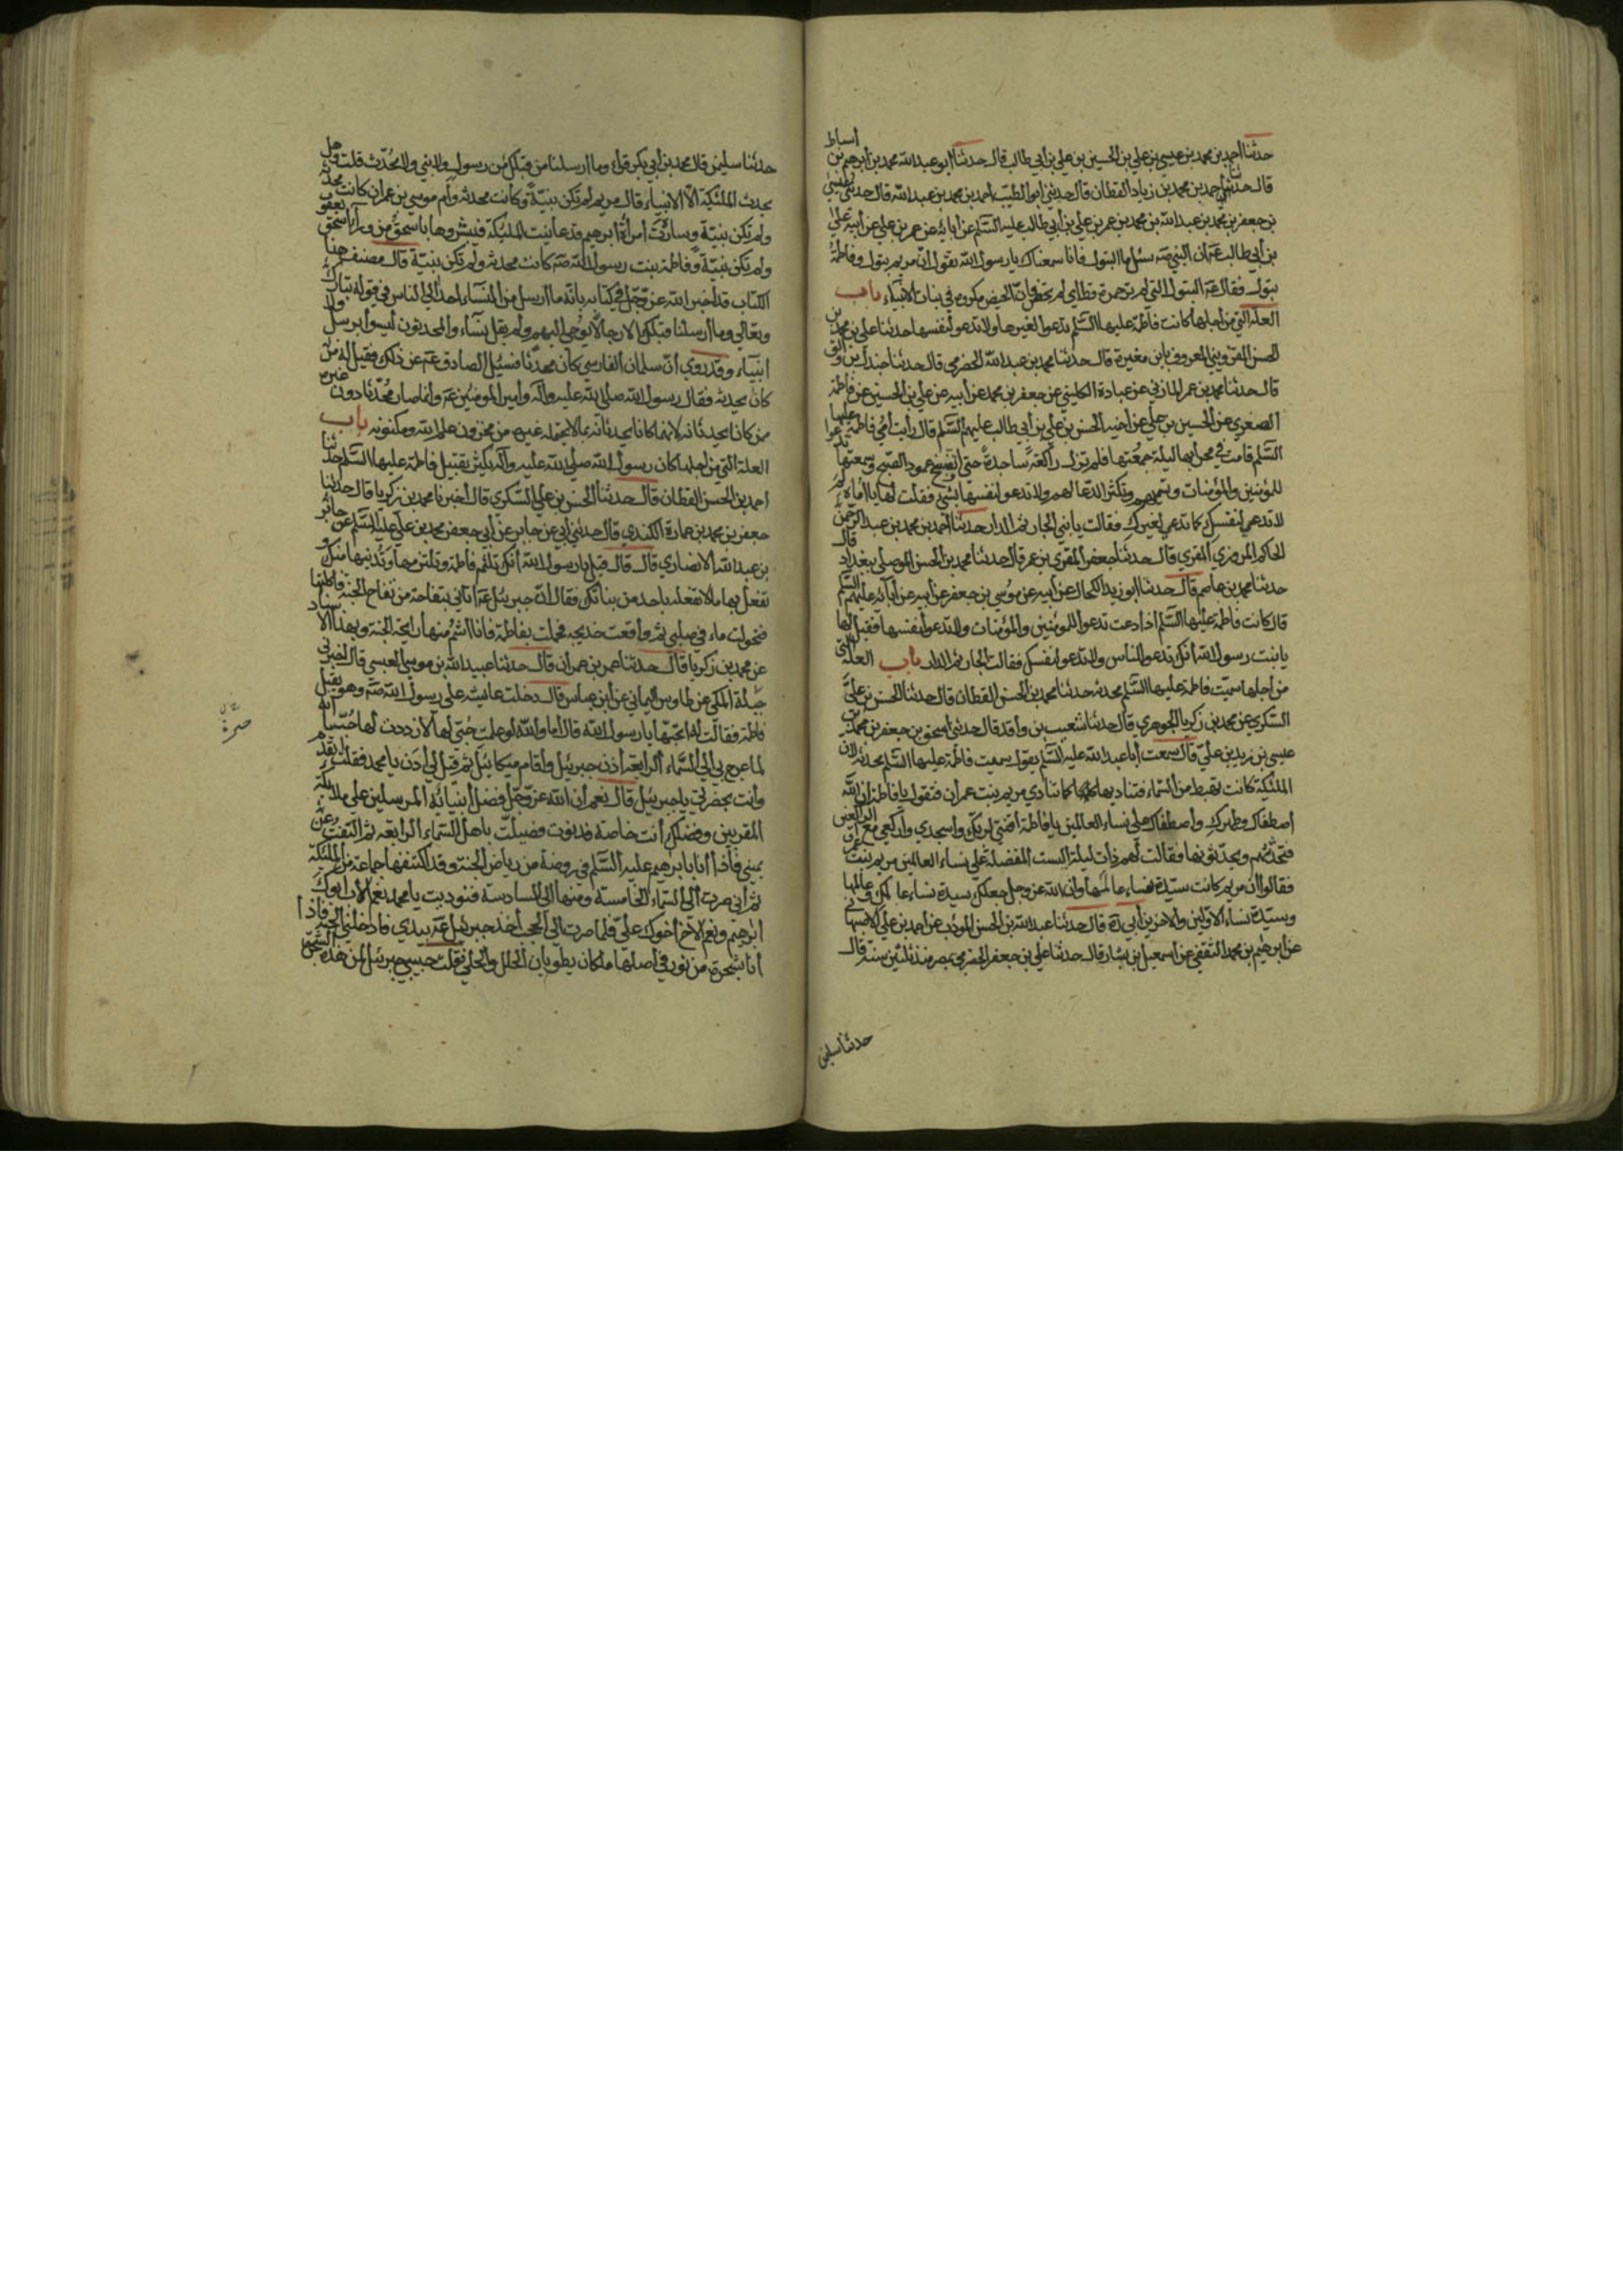 حدثنا احمد بن محمد بن عيسى بن علي بن الحسين بن علي بن ابي طالب قال حدثنا ابو عبد الله محمد بن ابرهيم بن اسباط
قال حدثنا احمد بن محمد بن زياد القطان قال حدثني ابو الطيب احمد بن محمد بن عبد الله قال حدثني عيسى
بن جعفر بن محمد بن عبد الله بن محمد بن عمر بن علي بن ابي طالب عليه السلم عن ابائه عن عمر بن علي عن ابيه علي
بن ابي طالب عه ان النبي صه سئل ما البتول فانا سمعناك يا رسول الله تقول ان مريم بتول وفاطمة
بتول فقال عه البتول التي لم تر حمرة قط اي لم تحض فان الحيض مكروه في بنات الانبياء باب
العلة التي من اجلها كانت فاطمة عليها السلم تدعو لغيرها ولا تدعو لنفسها حدثنا علي بن محمد بن
الحسن القزويني المعروف بابن مغيرة قال حدثنا محمد بن عبد الله الحضرمي قال حدثنا جندل بن والق
قال حدثنا محمد بن عمر المازني عن عبادة الكليني عن جعفر بن محمد عن ابيه عن علي بن الحسين عن فاطمة
الصغرى عن الحسين بن علي عن اخيه الحسن بن علي بن ابي طالب عليهم السلم قال رايت امي فاطمة عليها
السلم قامت في محرابها ليلة جمعتها فلم تزل راكعة ساجدة حتى اتضح عمود الصبح وسمعتها تدعوا
للمؤمنين والمؤمنات وتسميهم وتكثر الدعا لهم ولا تدعو لنفسها بشيء فقلت لها يا اماه لم
لا تدعي لنفسك كما تدعي لغيرك فقالت يا بني الجار ثم الدار حدثنا احمد بن محمد بن عبد الرحمن
الحاكم المروزي المقري قال حدثنا جعفر المقري بن عمر قال حدثنا محمد بن الحسن الموصلي ببغداد قال
حدثنا محمد بن عاصم قال حدثنا ابو زيد الكحال عن ابيه عن موسى بن جعفر عن ابيه عن ابائه عليهم السلم
قال كانت فاطمة عليها السلم اذا دعت تدعو للمؤمنين والمؤمنات ولا تدعو لنفسها فقيل لها
يا بنت رسول الله انك تدعو للناس ولا تدعو لنفسك فقالت الجار ثم الدار باب العلة التي
من اجلها سميت فاطمة عليها السلم محدثه حدثنا محمد بن الحسن القطان قال حدثنا الحسن بن علي
السكري عن محمد بن زكريا الجوهري قال حدثنا شعيب بن واقد قال حدثني اسحق بن جعفر بن محمد بن
عيسى بن زيد بن علي قال سمعت ابا عبد الله عليه السلم يقول سميت فاطمة عليها السلم محدثه لان
الملئكة كانت تهبط من السماء فتناديها كما تنادي مريم بنت عمران فتقول يا فاطمة ان الله
اصطفاك وطهرك واصطفاك على نساء العالمين يا فاطمة اقنتي لربك واسجدي واركعي مع الراكعين
فتحدثهم ويحدثونها فقالت لهم ذات ليلة اليست المفضلة على نساء العالمين مريم بنت عمران
فقالوا ان مريم كانت سيدة نساء عالمها وان الله عز وجل جعلك سيدة نساء عالمك وعالمها
وسيدة نساء الاولين والاخرين ابي ره قال حدثنا عبد الله بن الحسن المؤدب عن احمد بن علي الاصبهاني
عن ابرهيم بن محمد الثقفي عن اسمعيل بن بشار قال حدثنا علي بن جعفر الحضرمي بمصر منذ ثلثين سنة قال
حدثنا سليمن
حدثنا سليمن قال محمد بن ابي بكر قراء وما ارسلنا من قبلك من رسول ولا نبي ولا محدث قلت وهل
يحدث الملئكة الا الانبياء قال مريم لم تكن نبية وكانت محدثه وام موسى بن عمران كانت محدثه
ولم تكن نبية وسارة امراة ابرهيم قد عاينت الملئكة فبشروها باسحق ومن وراء اسحق يعقوب
ولم تكن نبية وفاطمة بنت رسول الله صه كانت محدثه ولم تكن نبية قال مصنف هذا
الكتاب قد اخبر الله عز وجل في كتابه بانه ما ارسل من النساء احدا الى الناس في قوله تبارك
وتعالى وما ارسلنا قبلك الا رجالا يوحى اليهم ولم يقل نساء والمحدثون ليسوا برسل ولا
انبياء وقد روي ان سلمان الفارسي كان محدثا فسئل الصادق عه عن ذلك وقيل له من
كان يحدثه فقال رسول الله صلى الله عليه وآله وامير المؤمنين عه وانما صار محدثا دون غيره
ممن كانا يحدثانه لانهما كانا يحدثانه بما لا يحتمله غيره من مخزون علم الله ومكنونه باب
العلة التي من اجلها كان رسول الله صلى الله عليه وآله يكثر تقبيل فاطمة عليها السلم حدثنا
احمد بن الحسن القطان قال حدثنا الحسن بن علي السكري قال اخبرنا محمد بن زكريا قال حدثنا
جعفر بن محمد بن عمارة الكندي قال حدثني ابي عن جابر عن ابي جعفر محمد بن علي عليه السلم عن جابر
بن عبد الله الانصاري قال قال قيل يا رسول الله انك تلثم فاطمة وتلتزمها وتدنيها منك و
تفعل بها ما لا تفعله باحد من بناتك فقال ان جبرئيل عه اتاني بتفاحة من تفاح الجنة فاكلتها
فتحولت ماء في صلبي ثم واقعت خديجه فحملت بفاطمة فانا اشم منها رايحة الجنة وبهذا الاسناد
عن محمد بن زكريا قال حدثنا عمر بن عمران قال حدثنا عبيد الله بن موسى العبسي قال اخبرني
جبلة المكي عن طاوس اليماني عن ابن عباس قال دخلت عايشه على رسول الله صه وهو يقبل
فاطمة فقالت له اتحبها يا رسول الله قال اما والله لو علمت حبي لها لازددت لها حبا انه
لما عرج بي الى السماء الرابعة اذن جبرئيل واقام ميكائيل ثم قيل لي ادن يا محمد فقلت اتقدم
وانت بحضرتي يا جبرئيل قال نعم ان الله عز وجل فضل انبيائه المرسلين على ملائكته
المقربين وفضلك انت خاصة فدنوت فصليت باهل السماء الرابعة ثم التفت عن
يميني فاذا انا بابرهيم عليه السلم في روضة من رياض الجنة وقد اكتنفها جماعة من الملئكة
ثم اني صرت الى السماء الخامسة ومنها الى السادسة فنوديت يا محمد نعم الاب ابوك
ابرهيم ونعم الاخ اخوك علي فلما صرت الى الحجب اخذ جبرئيل عه بيدي فادخلني الجنة فاذا
انا بشجرة من نور في اصلها ملكان يطويان الحلل والحلي فقلت حبيبي جبرئيل لمن هذه الشجرة